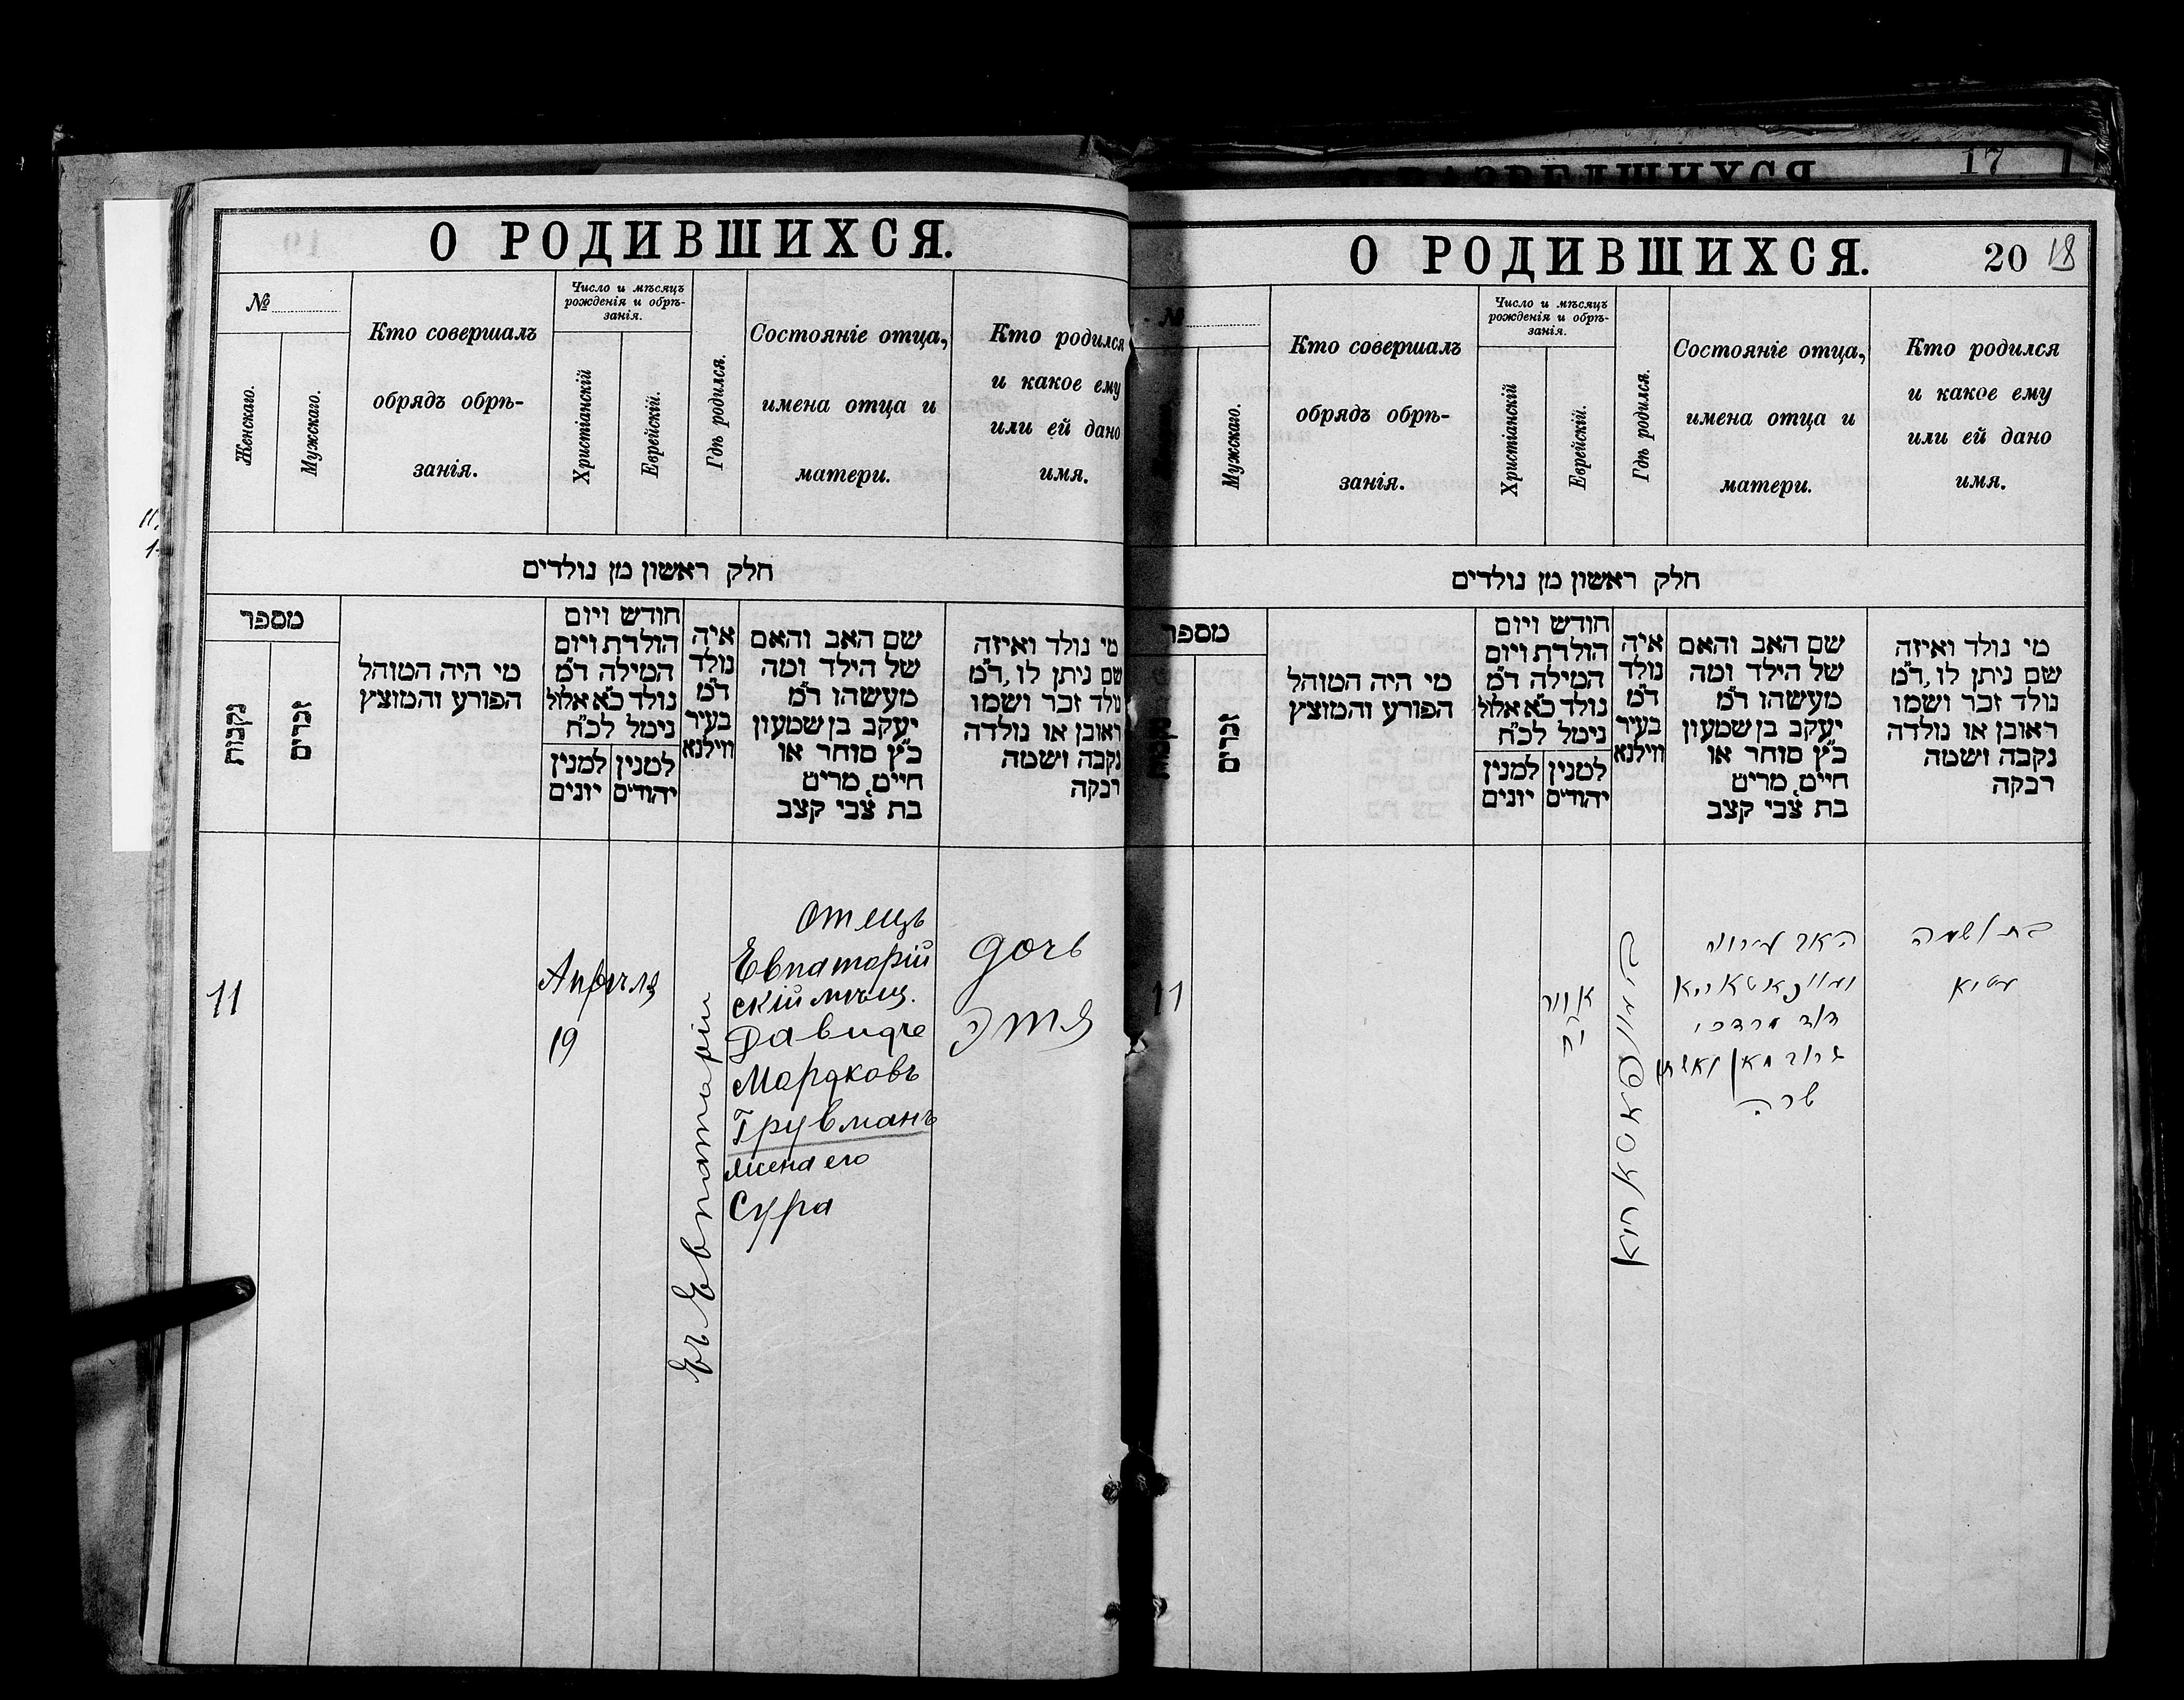 О РАЗВЕДШИХСЯ
17
О РОДИВШИХСЯ.
№
Женскаго.
Мужскаго.
Кто совершалъ
обрядъ обрѣ-
занія.
Число и мѣсяцъ
рожденія и обрѣ-
занія.
Христіанскій
Еврейскій.
Гдѣ родился.
Состояніе отца,
имена отца и
матери.
Кто родился
и какое ему
или ей дано
имя.
חלק ראשון מן נולדים
מספר
נקבות
זכרים
מי היה המוהל
הפורע והמוצץ
חודש ויום
הולדת ויום
המילה ד״מ
נולד כ״א אלול
נימל לכ״ח
למנין יונים
למנין יהודים
איה
נולד
ד״מ
בעיר
ווילנא
שם האב והאם
של הילד ומה
מעשהו ד״מ
יעקב בן שמעון
כ״ץ סוחר או
חיים, מרים
בת צבי קצב
מי נולד ואיזה
שם ניתן לו, ד״מ
נולד זכר ושמו
ראובן או נולדה
נקבה ושמה
רבקה
11
Апрѣля
19
Въ Евпаторіи
Отецъ
Евпаторій
скій мѣщ.
Давидъ
Мардковъ
Грувманъ
жена его
Сура
дочь
Этя
О РОДИВШИХСЯ.
20 18
№
Мужскаго.
Кто совершалъ
обрядъ обрѣ-
занія.
Число и мѣсяцъ
рожденія и обрѣ-
занія.
Христіанскій
Еврейскій.
Гдѣ родился.
Состояніе отца,
имена отца и
матери.
Кто родился
и какое ему
или ей дано
имя.
חלק ראשון מן נולדים
מספר
נקבות
זכרים
מי היה המוהל
הפורע והמוצץ
חודש ויום
הולדת ויום
המילה ד״מ
נולד כ״א אלול
נימל לכ״ח
למנין יונים
למנין יהודים
איה
נולד
ד״מ
בעיר
ווילנא
שם האב והאם
של הילד ומה
מעשהו ד״מ
יעקב בן שמעון
כ״ץ סוחר או
חיים, מרים
בת צבי קצב
מי נולד ואיזה
שם ניתן לו, ד״מ
נולד זכר ושמו
ראובן או נולדה
נקבה ושמה
רבקה
11
י״ח
האב
דוד מרדכי
שרה
בת ושמה
עטיא